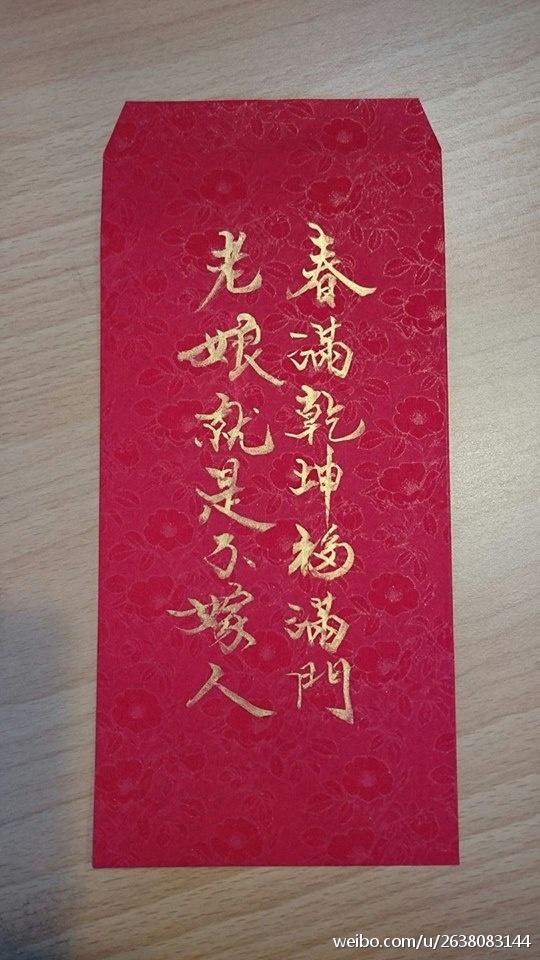 春滿乾坤福滿門
老娘就是不嫁人
weibo.com/u/2638083144